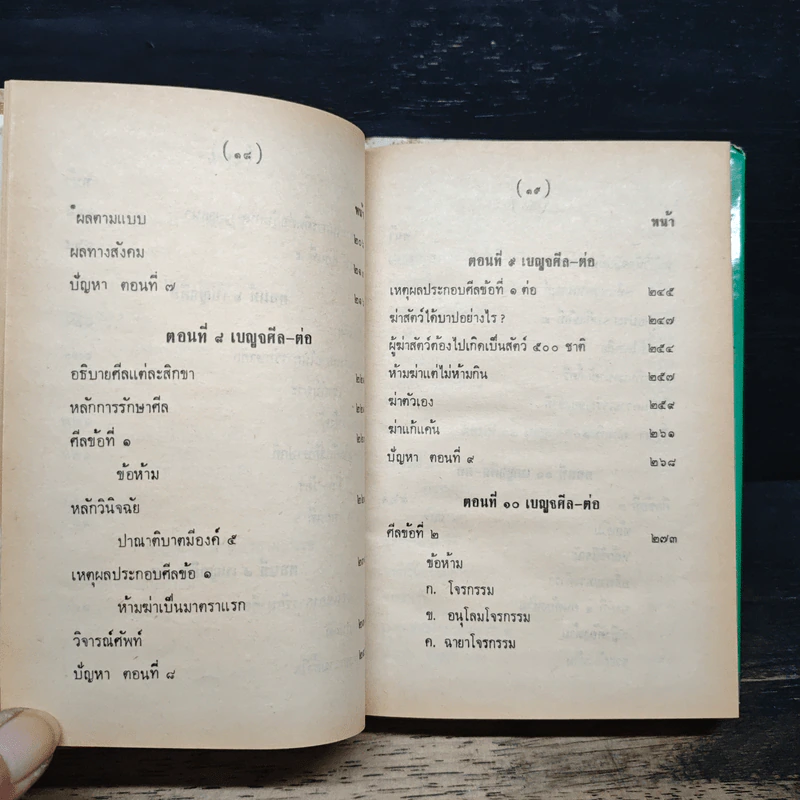 (๑๘)
ผลตามแบบ
ผลทางสังคม
ปัญหา ตอนที่ ๗
ตอนที่ ๘ เบญจศีล-ต่อ
อธิบายศีลแต่ละสิกขา
หลักการรักษาศีล
ศีลข้อที่ ๑
ข้อห้าม
หลักวินิจฉัย
ปาณาติบาตมีองค์ ๕
เหตุผลประกอบศีลข้อ ๑
ห้ามฆ่าเป็นมาตราแรก
วิจารณ์ศัพท์
ปัญหา ตอนที่ ๘
(๑๙)
หน้า
ตอนที่ ๙ เบญจศีล-ต่อ
เหตุผลประกอบศีลข้อที่ ๑ ต่อ ๒๔๕
ฆ่าสัตว์ได้บาปอย่างไร ? ๒๔๗
ผู้ฆ่าสัตว์ต้องไปเกิดเป็นสัตว์ ๕๐๐ ชาติ ๒๕๔
ห้ามฆ่าแต่ไม่ห้ามกิน ๒๕๗
ฆ่าตัวเอง ๒๕๙
ฆ่าแก้แค้น ๒๖๑
ปัญหา ตอนที่ ๙ ๒๖๘
ตอนที่ ๑๐ เบญจศีล-ต่อ
ศีลข้อที่ ๒ ๒๗๓
ข้อห้าม
ก. โจรกรรม
ข. อนุโลมโจรกรรม
ค. ฉายาโจรกรรม